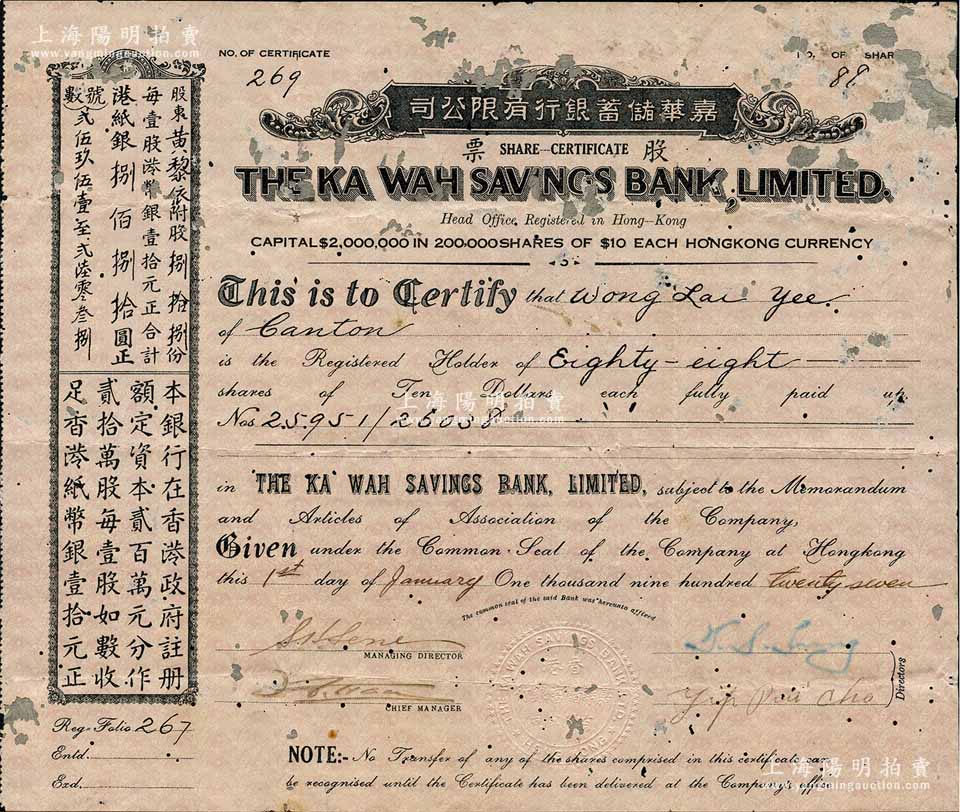 上海陽明拍賣
www.yangmingauction.com
NO. OF CERTIFICATE
269
NO. OF SHAR
88
司公限有行銀蓄儲華嘉
票 SHARE-CERTIFICATE 股
THE KA WAH SAVINGS BANK, LIMITED.
Head Office Registered in Hong-Kong
CAPITAL $2,000,000 IN 200,000 SHARES OF $10 EACH HONGKONG CURRENCY
This is to Certify that Wong Lai Yee
of Canton
is the Registered Holder of Eighty-eight
shares of Ten Dollars each fully paid up.
Nos 25951/26038
in THE KA WAH SAVINGS BANK, LIMITED, subject to the Memorandum
and Articles of Association of the Company,
Given under the Common Seal of the Company at Hongkong
this 1st day of January One thousand nine hundred twenty seven
The common seal of the said Bank was hereunto affixed
MANAGING DIRECTOR
CHIEF MANAGER
Directors
股東黃黎依附股捌拾捌份
每壹股港幣銀壹拾元正合計
港紙銀捌佰捌拾圓正
號數貳伍玖伍壹至貳陸零叁捌
本銀行在香港政府註册
額定資本貳百萬元分作
貳拾萬股每壹股如數收
足香港紙幣銀壹拾元正
Reg. Folio 267
Entd.
Exd.
NOTE:- No Transfer of any of the shares comprised in this certificate can
be recognised until the Certificate has been delivered at the Company's office
上海陽明拍賣
www.yangmingauction.com
上海陽明拍賣
www.yangmingauction.com